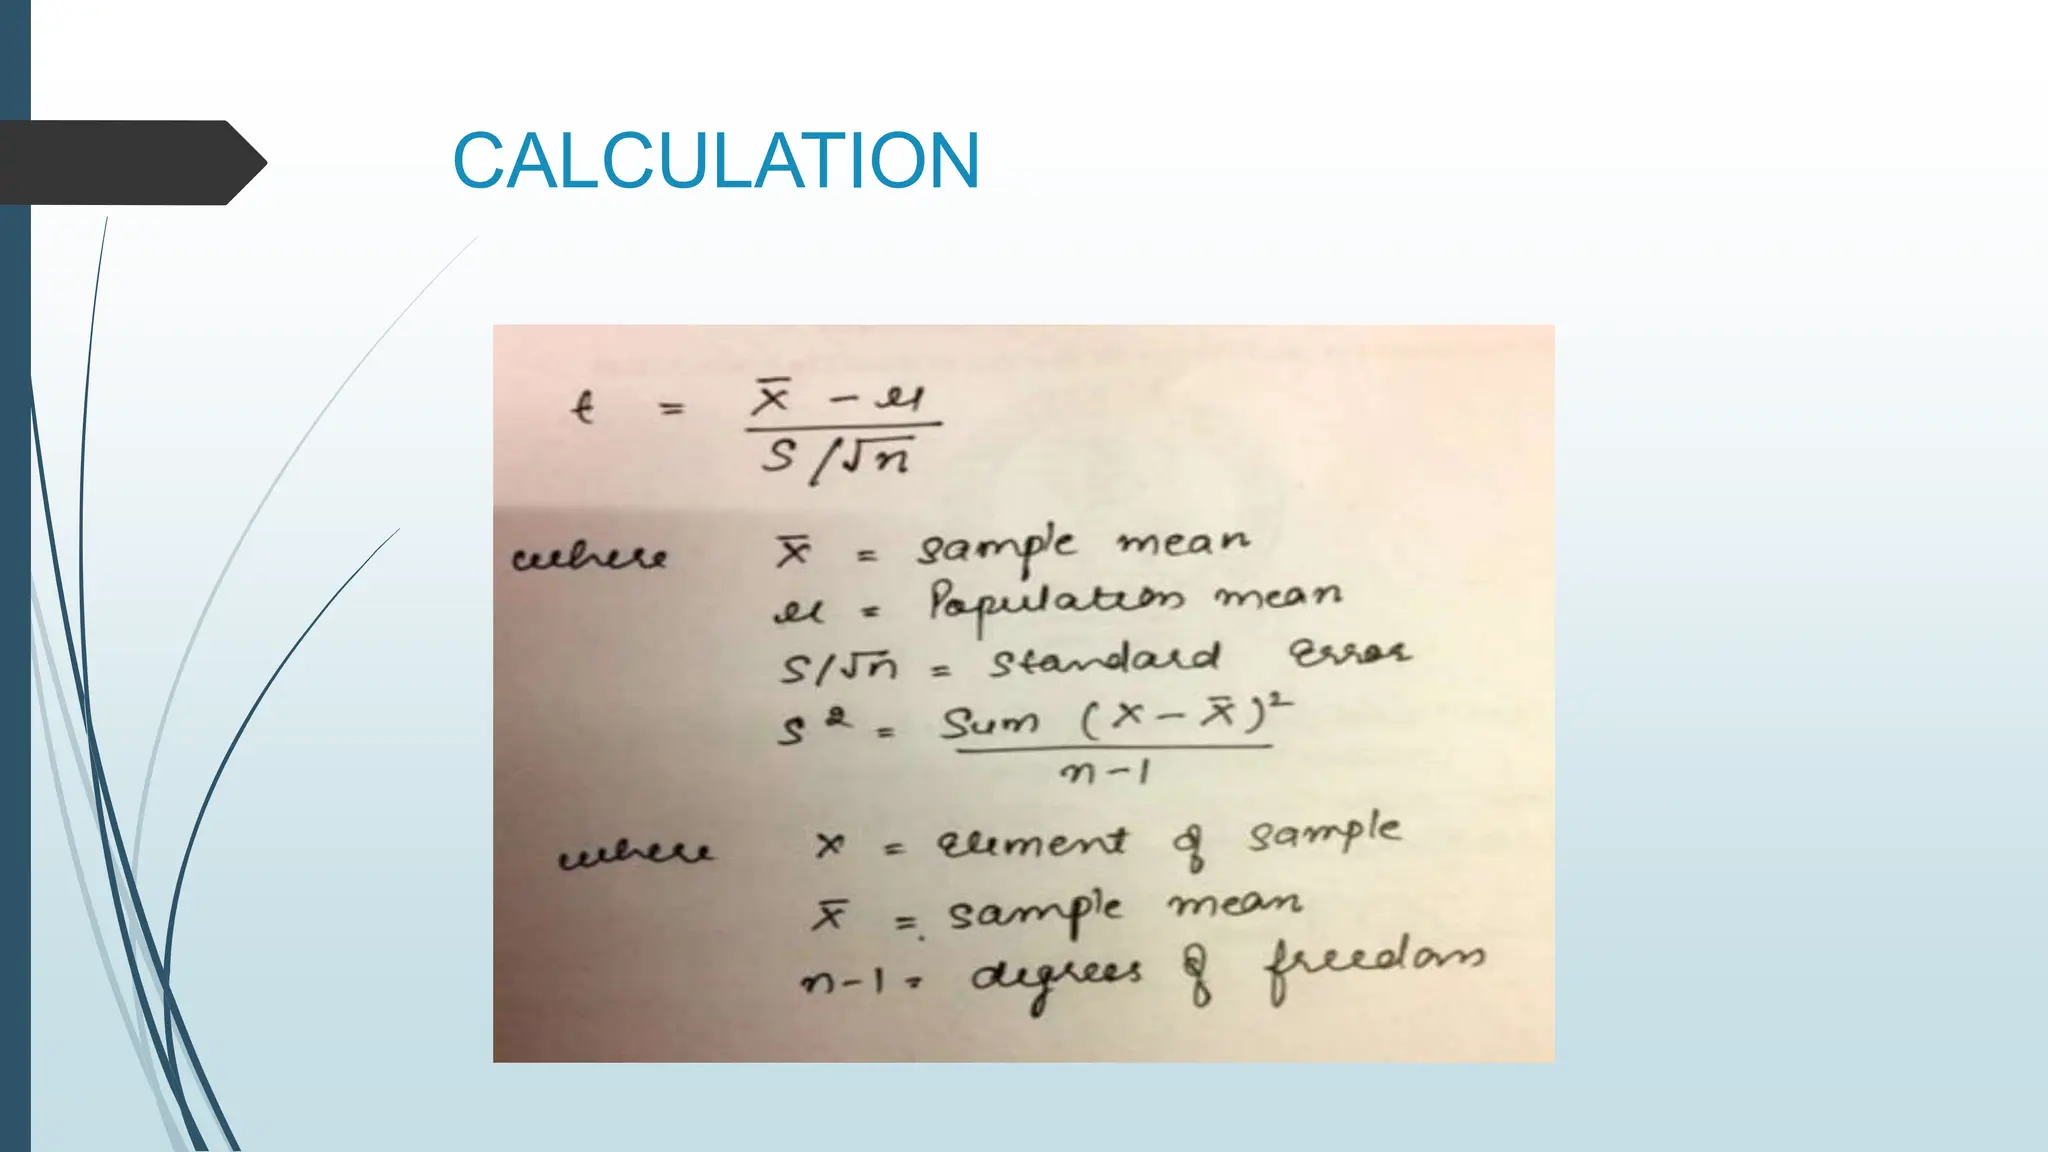 CALCULATION
t = x̄ - μ
S/√n
where x̄ = sample mean
μ = Population mean
S/√n = standard error
s² = Sum (x - x̄)²
n-1
where x = element of sample
x̄ = sample mean
n-1 = degrees of freedom